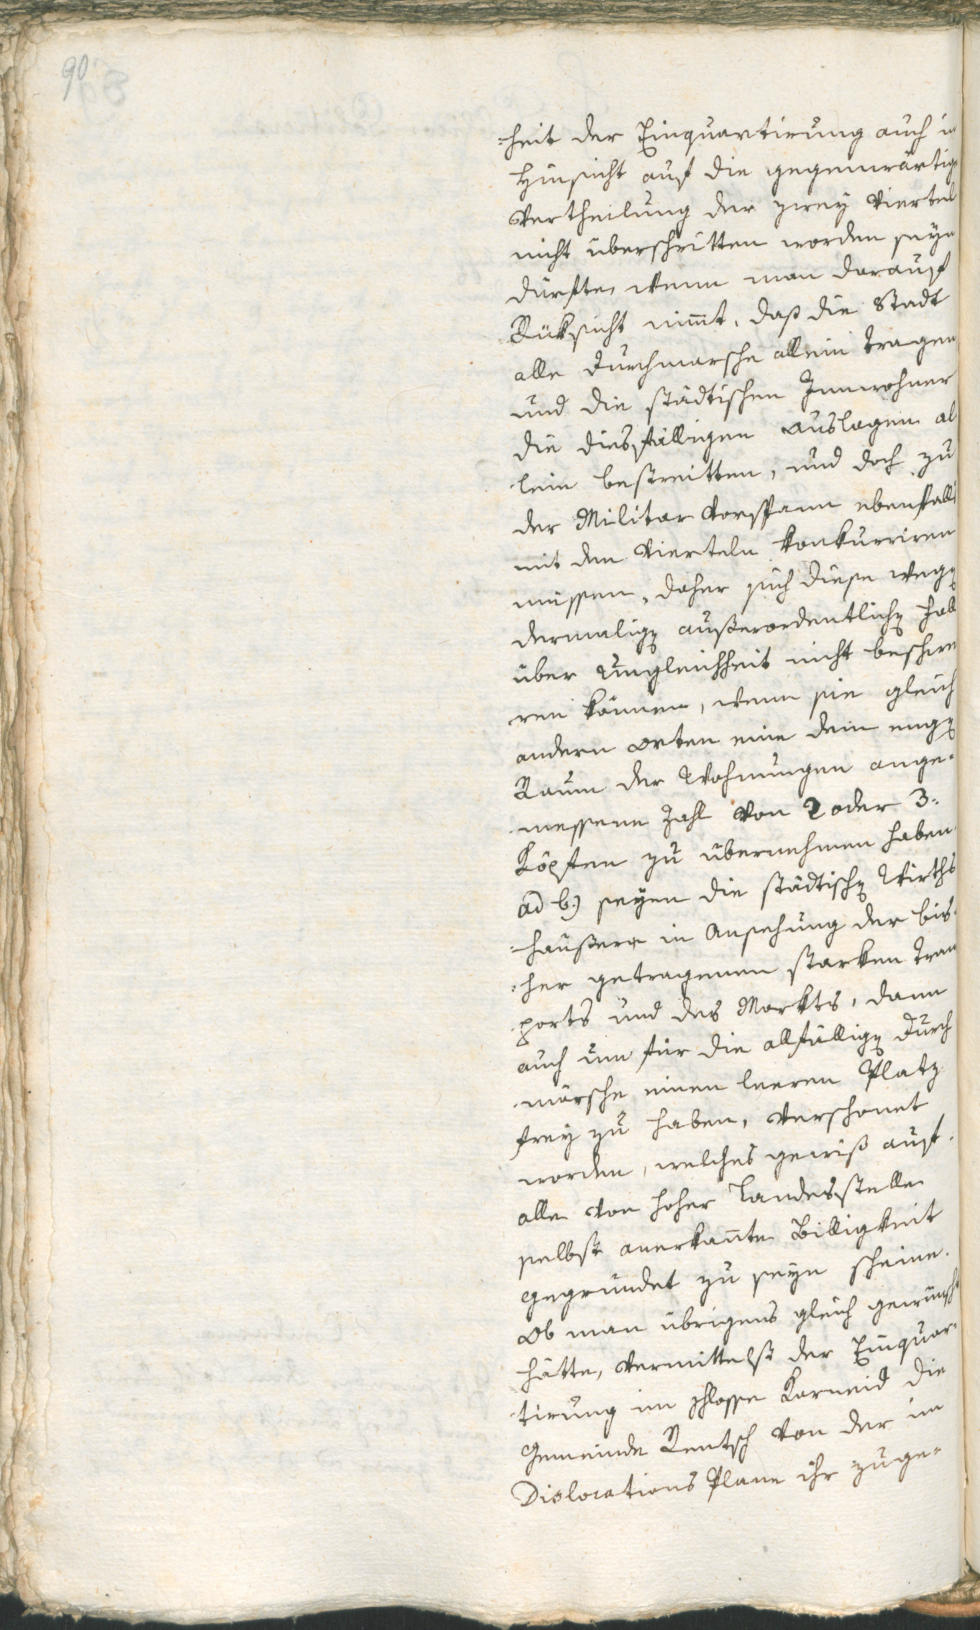 90
=heit der Einquartirung auch in
Hinsicht auf die gegenwärtige
Vertheilung der zwey Viertel
nicht überschritten worden seyn
dürfte, wenn man darauf
Rüksicht nimt, daß die Stadt
alle Durchmarsche allein tragen
und die städtischen Innwohner
die diesfälligen Auslagen al
lein bestreitten, und doch zu
der Militar Vorspann ebenfalls
mit den Vierteln konkurriren
müssen, daher sich diese wegen
dermaligen außerordentlichen Fall
über Ungleichheit nicht beschwe
ren können, wenn sie gleich
andern Orten eine dem engen
Raum der Wohnungen ange=
messene Zahl von 2 oder 3.
Köpfen zu übernehmen haben
ad b.) seyen die städtischen Wirths
=häußer in Ansehung der bis=
=her getragenen starken Trans
ports und des Markts, dann
auch um für die allfälligen Durch
märsche einen leeren Platz
frey zu haben, verschonet
worden, welches gewiß auf
alle von hoher Landesstelle
selbst anerkannte Billigkeit
gegründet zu seyn scheine.
Ob man übrigens gleich gewünscht
hätte, vermittelst der Einquar=
tirung im Schlosse Karneid die
Gemeinde Rentsch von der im
Dislocations Plane ihr zuge=